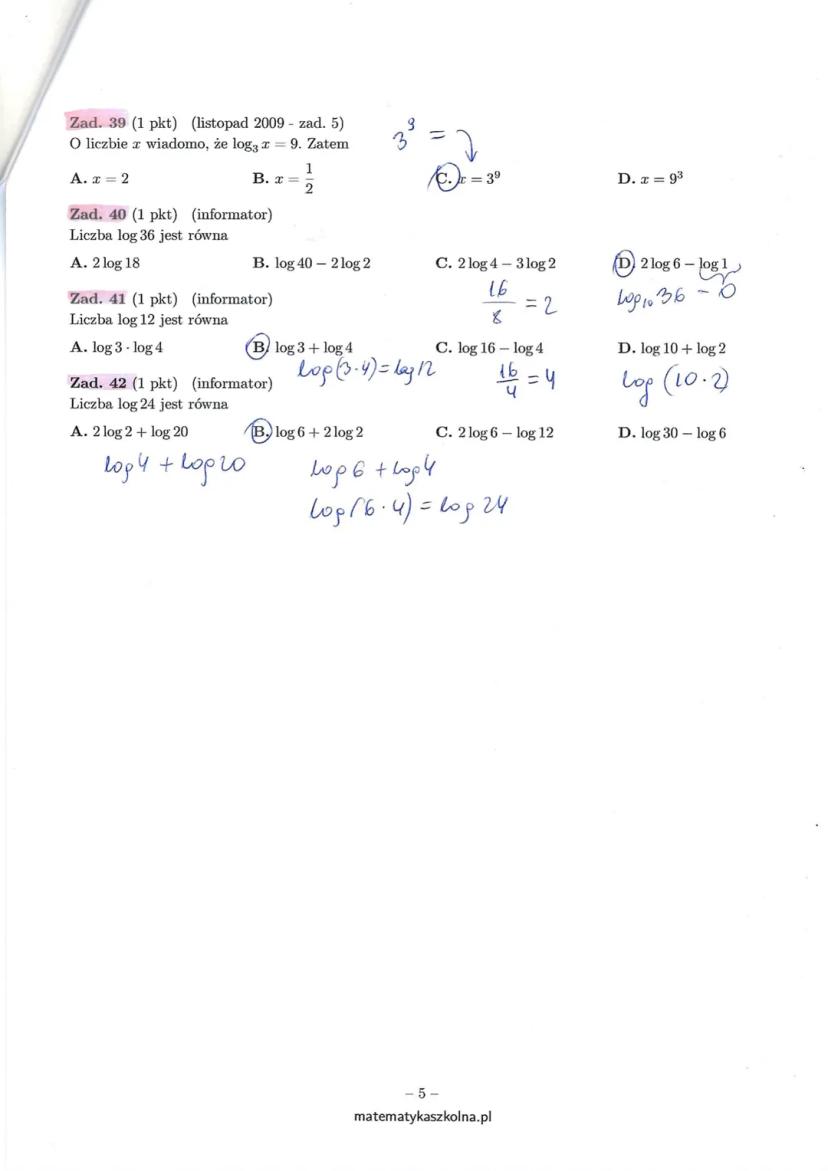 Zad. 39 (1 pkt) (listopad 2009 - zad. 5)
3⁹ =
O liczbie x wiadomo, że log₃ x = 9. Zatem
A. x = 2 B. x = 1/2 C. x = 3⁹ D. x = 9³
Zad. 40 (1 pkt) (informator)
Liczba log 36 jest równa
A. 2 log 18 B. log 40 − 2 log 2 C. 2 log 4 − 3 log 2 D. 2 log 6 − log 1
16/8 = 2 log₁₀ 36 − 0
Zad. 41 (1 pkt) (informator)
Liczba log 12 jest równa
A. log 3 · log 4 B. log 3 + log 4 C. log 16 − log 4 D. log 10 + log 2
log(3·4) = log 12 16/4 = 4 log (10·2)
Zad. 42 (1 pkt) (informator)
Liczba log 24 jest równa
A. 2 log 2 + log 20 B. log 6 + 2 log 2 C. 2 log 6 − log 12 D. log 30 − log 6
log 4 + log 20 log 6 + log 4
log(6·4) = log 24
– 5 –
matematykaszkolna.pl